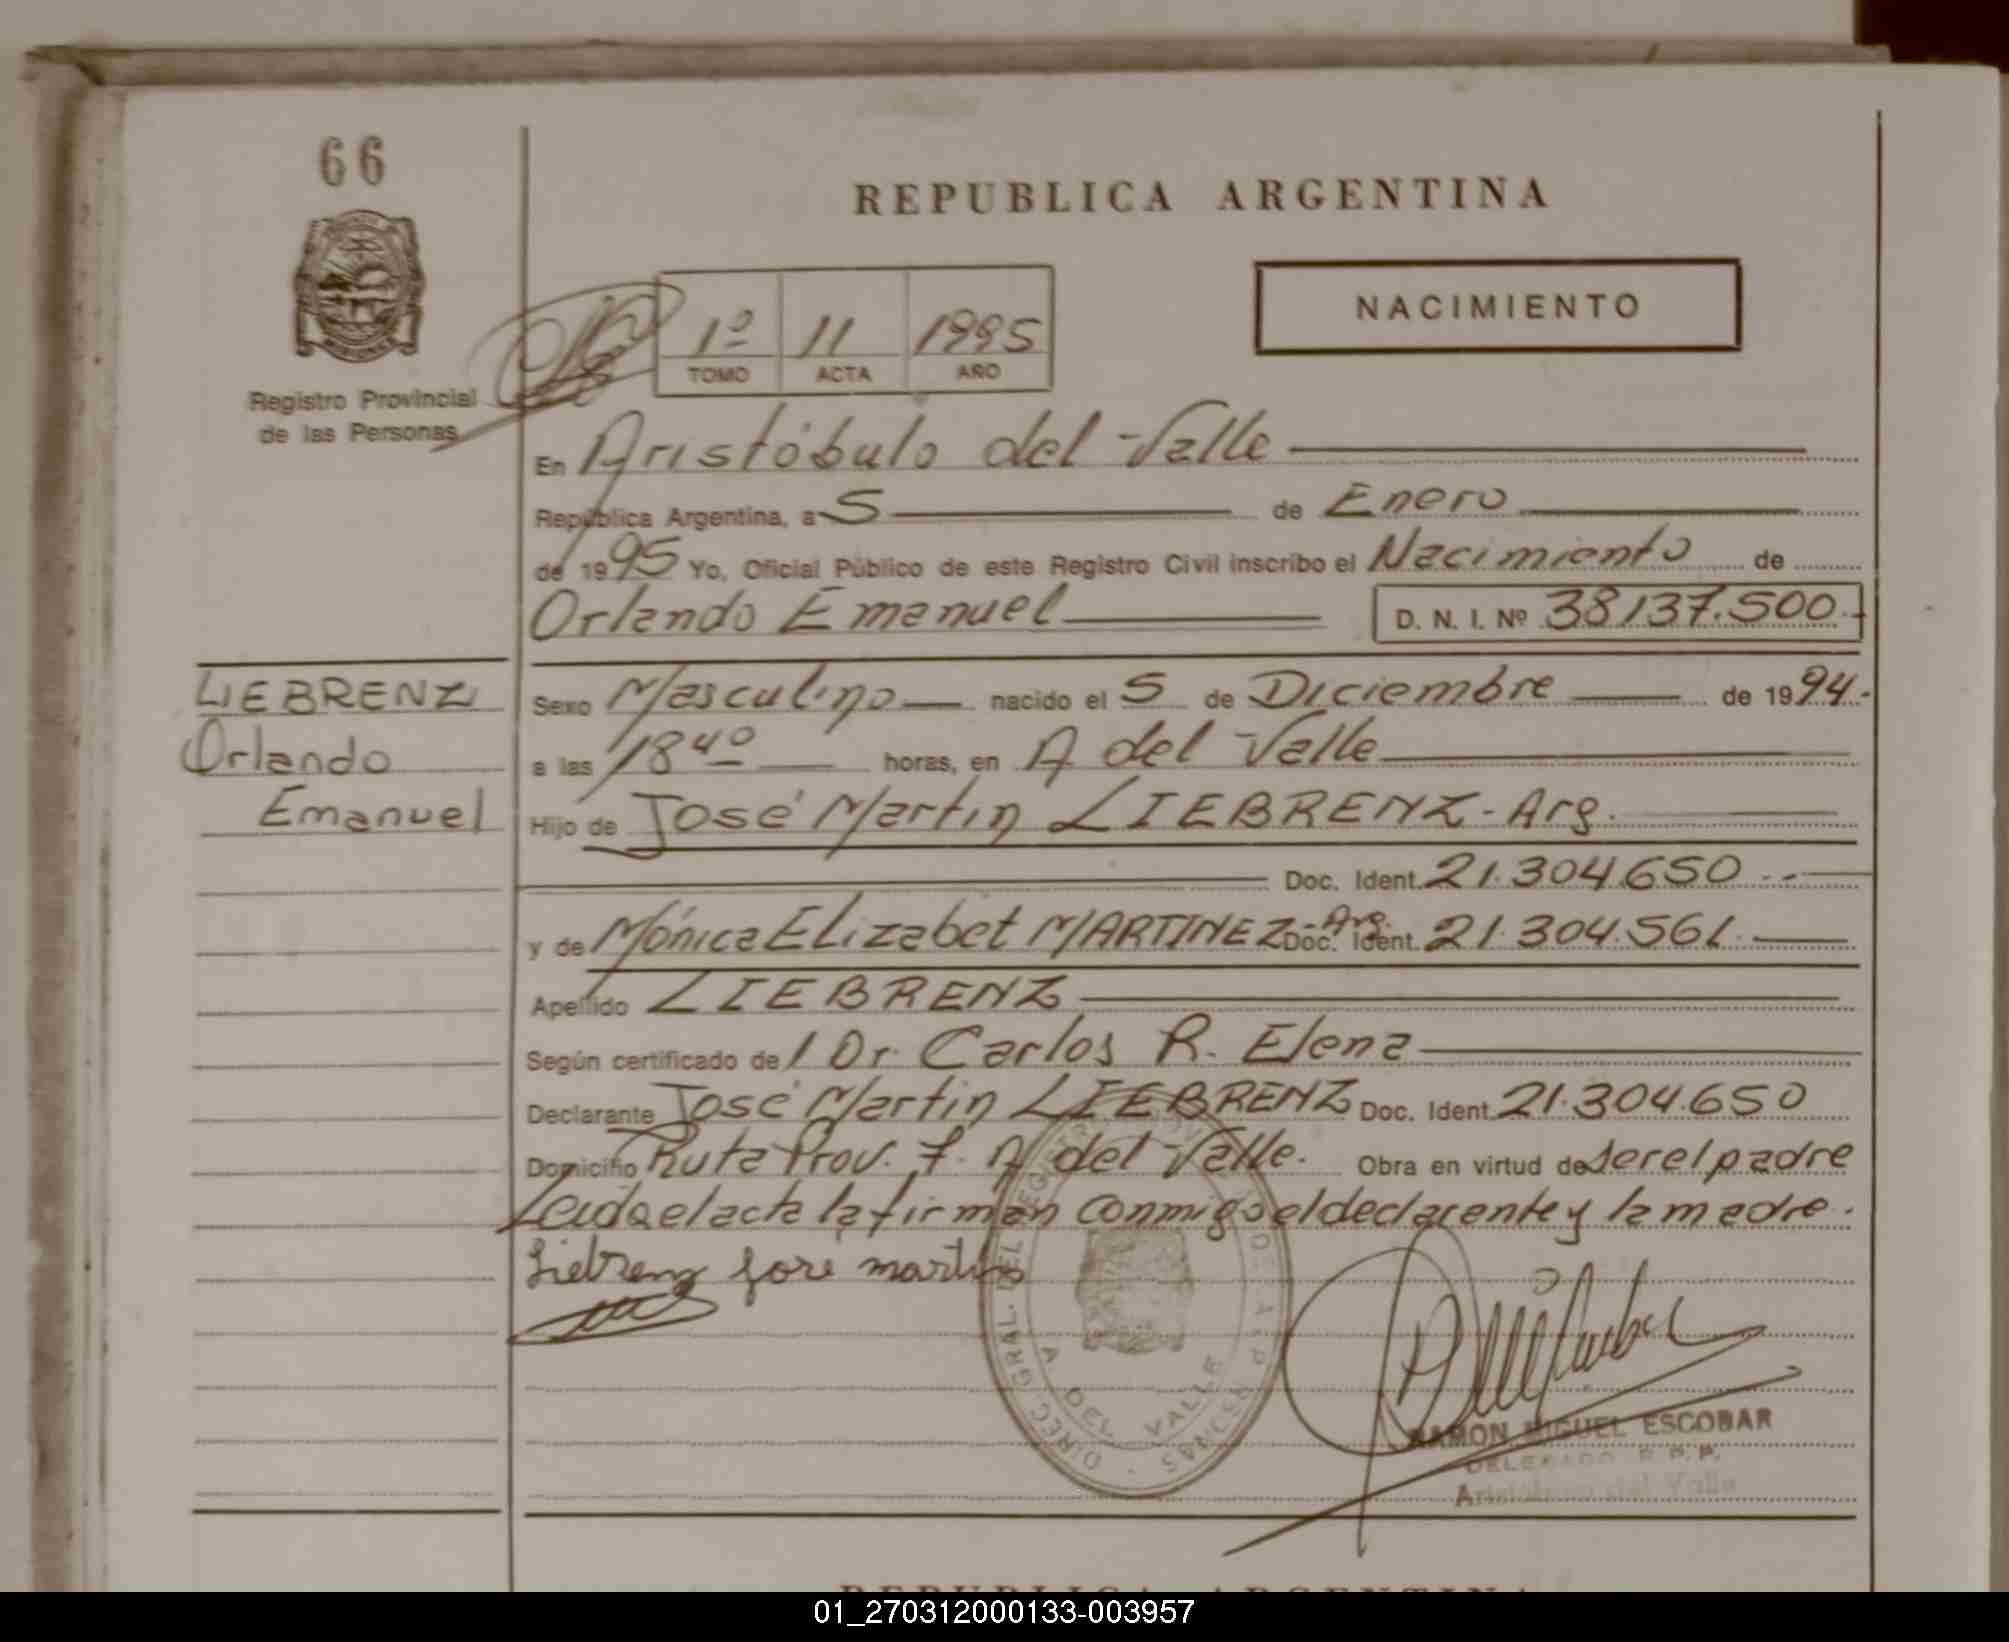 66
REPUBLICA ARGENTINA
NACIMIENTO
1º 11 1995
TOMO ACTA AÑO
Registro Provincial
de las Personas
En Aristóbulo del Valle
República Argentina, a 5 de Enero
de 1995 Yo, Oficial Público de este Registro Civil inscribo el Nacimiento de
Orlando Emanuel D. N. I. Nº 38137.500.-
LIEBRENZ
Orlando
Emanuel
Sexo Masculino nacido el 5 de Diciembre de 1994.-
a las 18 40 horas, en A del Valle
Hijo de José Martin LIEBRENZ - Arg.
Doc. Ident. 21.304.650 --
y de Mónica Elizabet MARTINEZ - Arg. Doc. Ident. 21.304.561.
Apellido LIEBRENZ
Según certificado de / Dr. Carlos R. Elena
Declarante José Martin LIEBRENZ Doc. Ident. 21.304.650
Domicilio Ruta Prov. 7. A del Valle. Obra en virtud de ser el padre
Leida el acta la firman conmigo el declarante y la madre.
Liebrenz jose martin
DIREC. GRAL. DEL
A DEL VALLE
RAMON MIGUEL ESCOBAR
DELEGADO R.P.P.
Aristobulo del Valle
REPUBLICA ARGENTINA
01_270312000133-003957